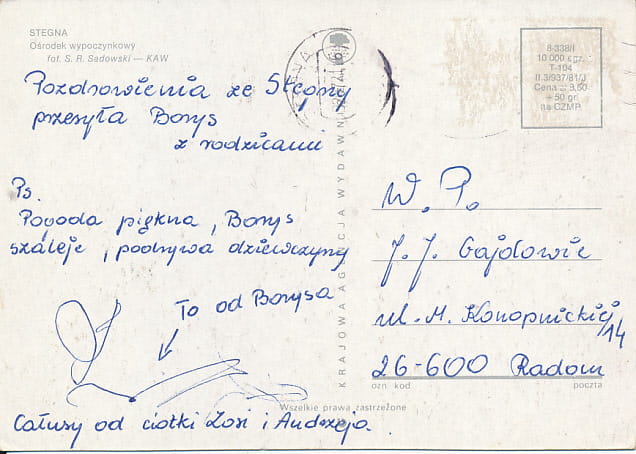 STEGNA
Ośrodek wypoczynkowy
fot. S. R. Sadowski — KAW
Pozdrowienia ze Stegny
przesyła Borys
z rodzicami
Ps.
Pogoda piękna, Borys
szaleje, podrywa dziewczyny
To od Borysa
Całusy od ciotki Zosi i Andrzeja.
KRAJOWA AGENCJA WYDAWN
8-338/I
10 000 egz.
T-104
II.3/937/81/J
Cena zł 3,50
+ 50 gr
na CZMP
W. P.
J. J. Gajdowie
ul. M. Konopnickiej
/14
26-600 Radom
ozn. kod poczta
Wszelkie prawa zastrzeżone